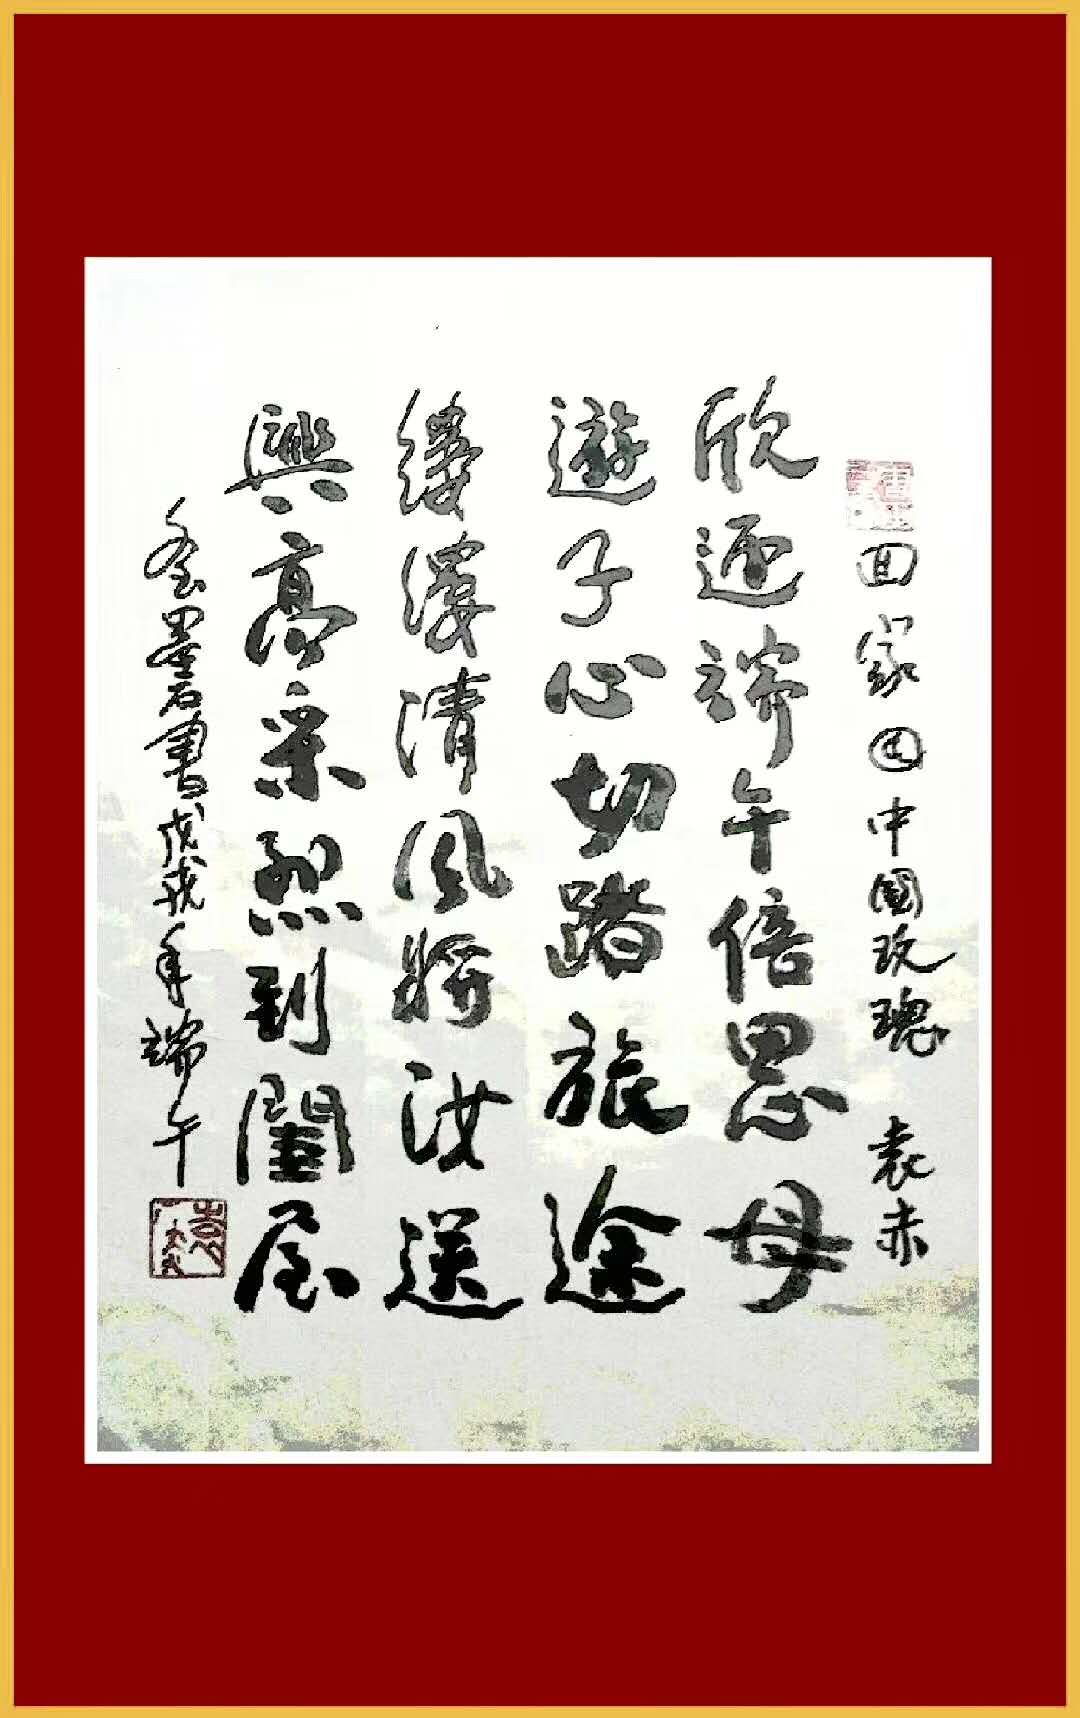 回家 中國玫瑰 袁赤
欣端午倍思母
遊子心切踏旅途
縷縷清風將汝送
興高采烈到閨屋
墨石書戊戌年端午